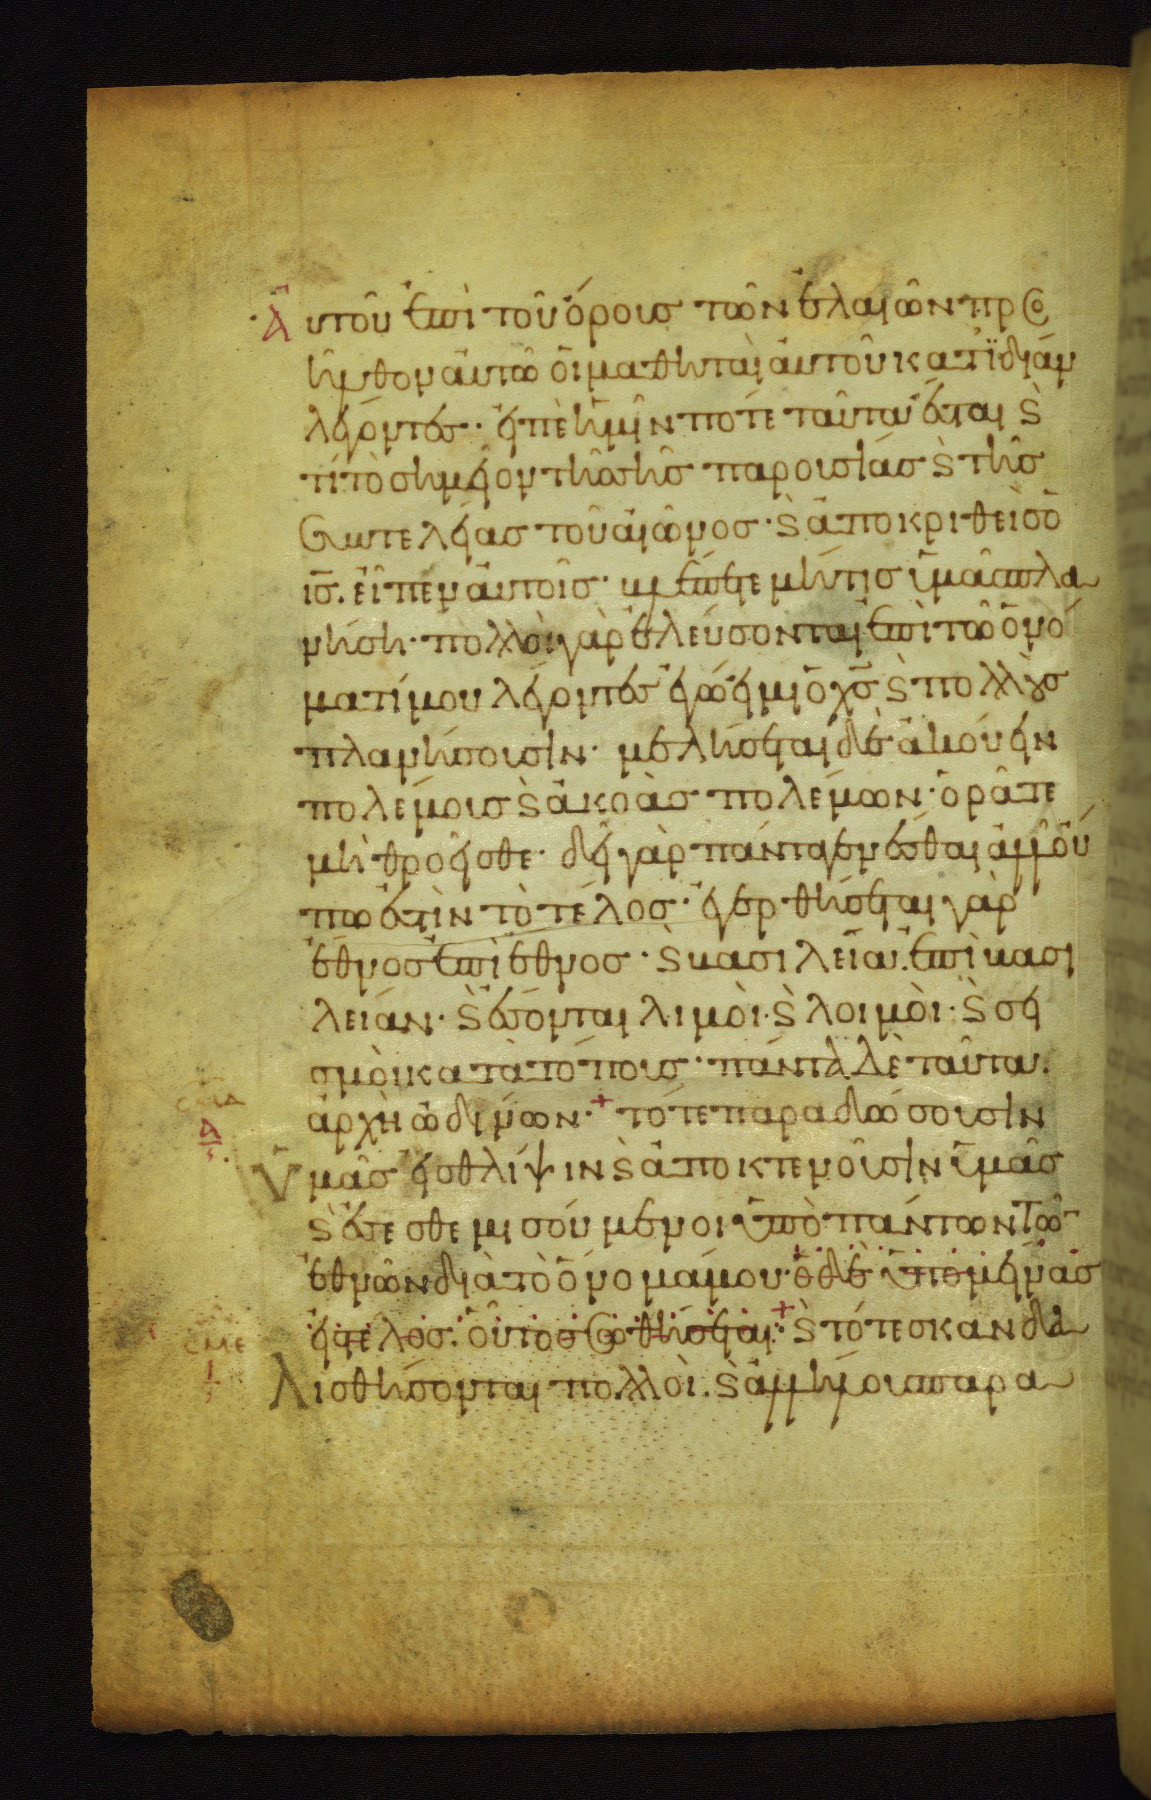 Αὐτοῦ ἐπὶ τοῦ ὄρους τῶν ἐλαιῶν προσ
ῆλθον αὐτῶ οἱ μαθηταὶ αὐτοῦ κατϊδίαν
λέγοντες· εἰπὲ ἡμῖν πότε ταῦτα ἔσται ϗ
τί τὸ σημεῖον τῆς σῆς παρουσίας ϗ τῆς
συντελείας τοῦ αἰῶνος· ϗ ἀποκριθεὶς ὁ
ις̅. εἶπεν αὐτοῖς· βλέπετε μήτις ὑμᾶς πλα
νήση· πολλοὶ γὰρ ἐλεύσονται ἐπὶ τῶ ὀνό
ματί μου λέγοντες ἐγώ εἰμι ὁ χς̅ ϗ πολλοὺς
πλανήσουσιν· μελήσεται δὲ ἀκούειν
πολέμους ϗ ἀκοὰς πολέμων· ὁρᾶτε
μὴ θροεῖσθε· δεῖ γὰρ πάντα γενέσθαι ἀλλ' οὔ
πω ἐστὶν τὸ τέλος· ἐγερθήσεται γὰρ
ἔθνος ἐπὶ ἔθνος· ϗ βασιλεία. ἐπὶ βασι
λείαν· ϗ ἔσονται λιμοὶ· ϗ λοιμοὶ· ϗ σει
σμοὶ κατὰ τόπους· πάντα δὲ ταῦτα.
ἀρχὴ ὠδίνων· + τότε παραδώσουσιν
ϲμδ
Ὑμᾶς εἰς θλίψιν ϗ ἀποκτενοῦσιν ὑμᾶς
ϗ ἔσεσθε μισούμενοι ὑπὸ πάντων τῶ
ἐθνῶν διὰ τὸ ὄνομά μου· ὁ δὲ ὑπομείνας
εἰς τέλος. οὗτος σωθήσεται· + ϗ τότε σκανδα
ϲμε
Λισθήσονται πολλοὶ. ϗ ἀλλήλους παρα